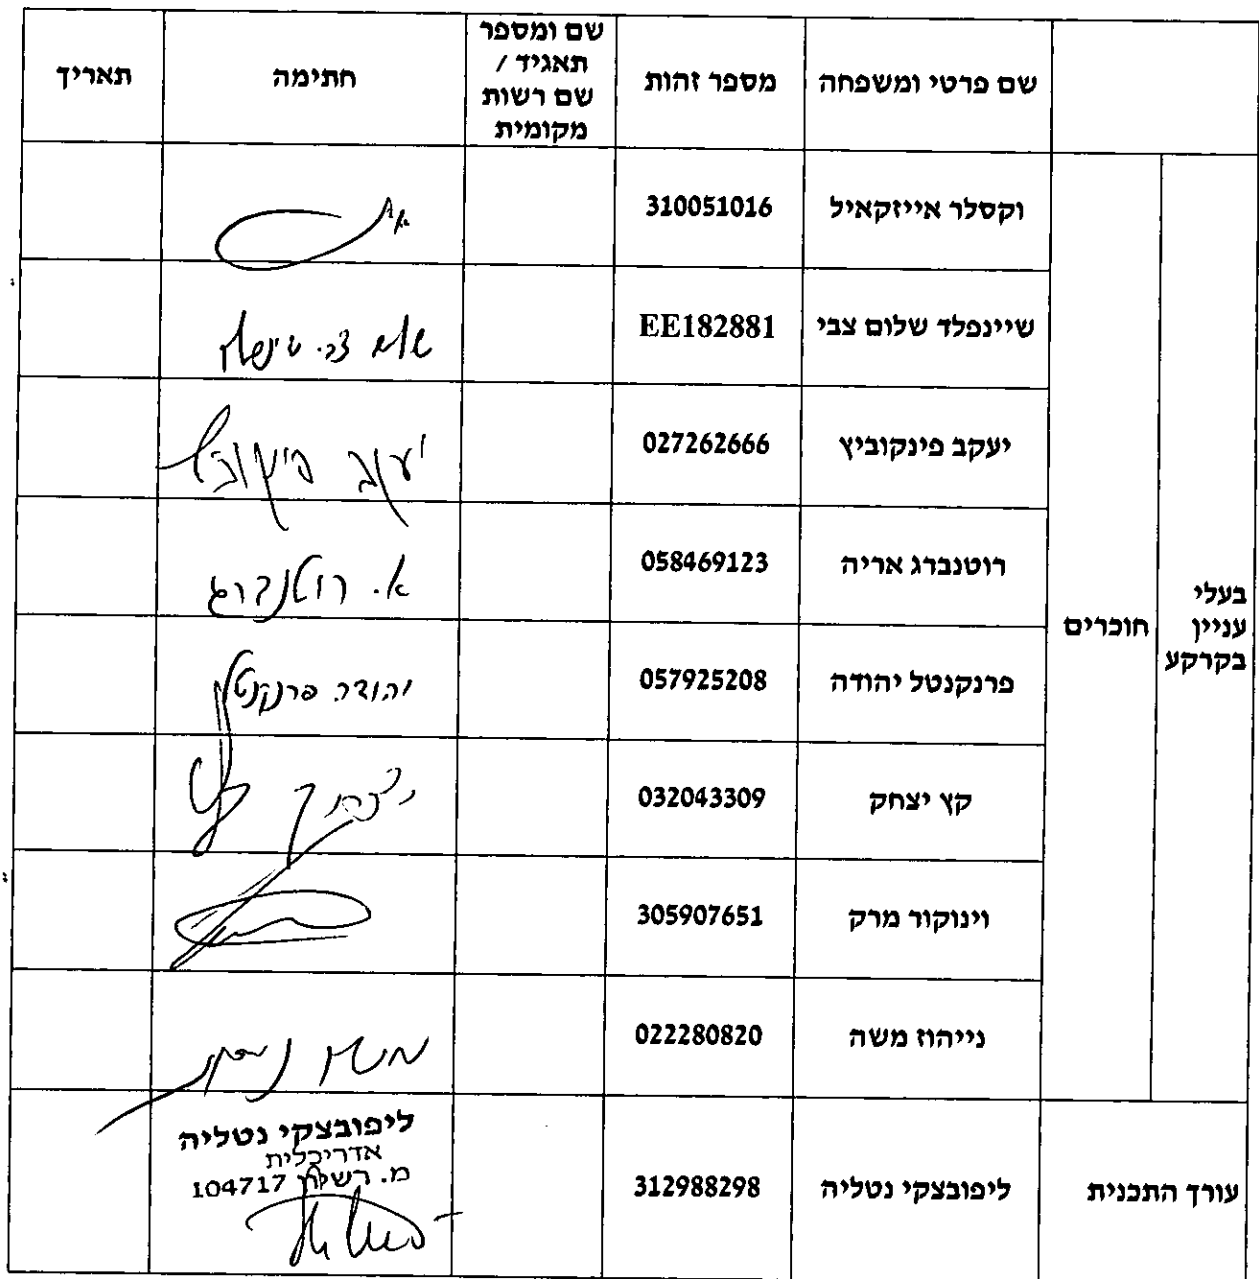 שם פרטי ומשפחה
מספר זהות
שם ומספר
תאגיד /
שם רשות
מקומית
חתימה
תאריך
בעלי
עניין
בקרקע
חוכרים
וקסלר אייזקאיל
310051016
שיינפלד שלום צבי
EE182881
יעקב פינקוביץ
027262666
יעקב פינקוביץ
רוטנברג אריה
058469123
א. רוטנברג
פרנקנטל יהודה
057925208
יהודה פרנקנטל
קץ יצחק
032043309
וינוקור מרק
305907651
נייהוז משה
022280820
עורך התכנית
ליפובצקי נטליה
312988298
ליפובצקי נטליה
אדריכלית
מ. רשיון 104717